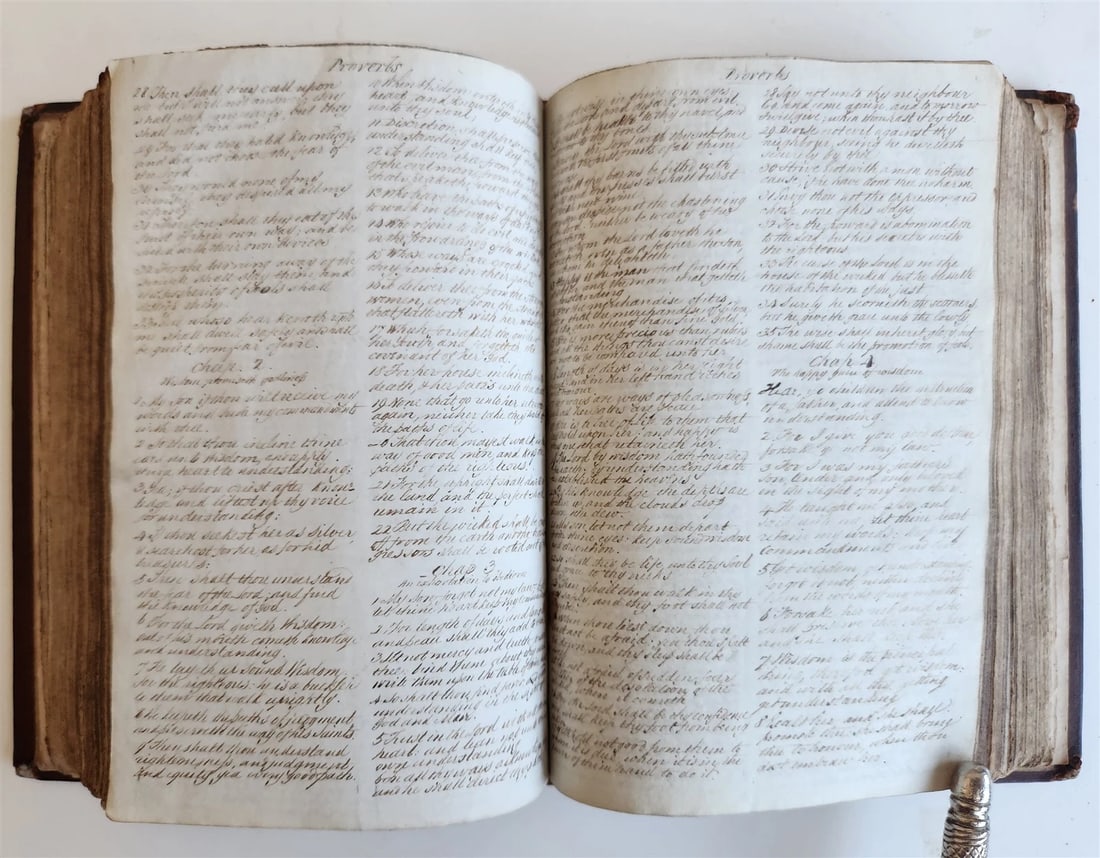 Proverbs
28 Then shall they call upon
me but I will not answer they
shall seek me early, but they
shall not find me:
29 For that they hated knowledge,
and did not choose the fear of
the Lord.
30 They would none of my
they despised all my
reproof
31 Therefore shall they eat of the
fruit of their own way, and be
filled with their own devices
32 For the turning away of the
simple shall slay them and
the prosperity of fools shall
destroy them
33 But whoso hearkeneth unto
me shall dwell safely and shall
be quiet from fear of evil.
Chap. 2.
Wisdom promiseth godliness
1 My Son if thou wilt receive my
words and hide my commandments
with thee.
2 So that thou incline thine
ears unto Wisdom, and apply
thine heart to understanding;
3 Yea; if thou criest after know-
ledge and liftest up thy voice
for understanding;
4 If thou seekest her as silver
& searchest for her as for hid
treasures:
5 Then shalt thou understand
the fear of the Lord, and find
the knowledge of God.
6 For the Lord giveth Wisdom:
out of his mouth cometh knowledge
and understanding.
7 He layeth up sound Wisdom
for the righteous: he is a buckler
to them that walk uprightly.
8 He keepeth the paths of judgement,
and preserveth the way of his Saints.
9 Then shalt thou understand
righteousness, and judgment,
and equity; yea every good path.
10 When Wisdom entereth
heart, and knowledge
unto thy soul,
11 Discretion shall preserve
understanding shall keep
12 To deliver thee from the
of the evil man, from the
that speaketh froward
13 Who leave the paths of
to walk in the ways of
14 Who rejoice to do evil, and
in the frowardness of
15 Whose ways are crooked
they froward in their paths
16 To deliver thee from the strange
woman, even from the
that flattereth with her words
17 Which forsaketh the
her youth and forgetteth the
covenant of her God.
18 For her house inclineth
death, & her paths unto the
19 None that go unto her return
again, neither take they hold of
the paths of life.
20 That thou mayest walk in the
way of good men and keep
paths of the righteous.
21 For the upright shall dwell
the land and the perfect shall
remain in it.
22 But the wicked shall be
off from the earth and the
gressors shall be rooted out
Chap 3
An exhortation to
1 My Son forget not my law
let thine heart keep my
2 For length of days, and
and peace shall they add
3 Let not mercy and truth
thee: bind them about thy
write them upon the table of
4 So shalt thou find favour
understanding in the sight of
God and Man.
5 Trust in the Lord with all
heart; and lean not unto
own understanding
6 In all thy ways acknowledge
and he shall direct thy paths
Proverbs
wise in thine own eyes
Lord and depart from evil
health to thy navel, and
bones.
the Lord with thy substance
firstfruits of all thine
barns be filled with
presses shall burst
wine.
despise not the chastening
neither be weary of his
correction
whom the Lord loveth he
even as a father the son
in whom he delighteth
Happy is the man that findeth
and the man that getteth
understanding
For the merchandise of it is
than the merchandise of silver,
the gain thereof than fine Gold.
She is more precious than rubies
all the things thou canst desire
not to be compared unto her.
length of days is in her right
and in her left hand riches
honour
Her ways are ways of pleasantness,
all her paths are peace
She is a tree of life to them that
lay hold upon her, and happy is
every one that retaineth her
The Lord by wisdom hath founded
the earth, by understanding hath
established the heavens
By his knowledge the depths are
broken up and the clouds drop
the dew.
My son, let not them depart
thine eyes: keep sound wisdom
and discretion.
So shall they be life unto thy soul
to thy neck
Then shalt thou walk in thy
safely, and thy foot shall not
When thou liest down, thou
not be afraid: yea thou shalt
lie down and thy sleep shall be
Be not afraid of sudden fear
of the desolation of the
when it cometh
For the Lord shall be thy confidence
shall keep thy foot from being
Withhold not good from them to
is due when it is in the
of thine hand to do it.
28 Say not unto thy neighbour
Go and come again and to morrow
I will give, when thou hast it by thee.
29 Devise not evil against thy
neighbour, seeing he dwelleth
securely by thee.
30 Strive not with a man without
cause, if he have done thee no harm
31 Envy thou not the oppressor, and
choose none of his ways
32 For the froward is abomination
to the Lord: but his secret is with
the righteous.
33 The curse of the Lord is in the
house of the wicked but he blesseth
the habitation of the just
34 Surely he scorneth the scorners
but he giveth grace unto the lowly
35 The wise shall inherit glory but
shame shall be the promotion of fools.
Chap 4
The happy gain of wisdom
Hear, ye children the instruction
of a father, and attend to know
understanding.
2 For I give you good doctrine
forsake ye not my law.
3 For I was my father's
Son, tender and only beloved
in the sight of my mother.
4 He taught me also, and
said unto me, Let thine heart
retain my words: keep my
commandments and live
5 Get wisdom, get understanding
forget it not neither decline
from the words of my mouth.
6 Forsake her not and she
shall preserve thee love her
and she shall keep thee.
7 Wisdom is the principal
thing, therefore get wisdom
and with all thy getting
get understanding
8 Exalt her, and she shall
promote thee: she shall bring
thee to honour, when thou
dost embrace her.